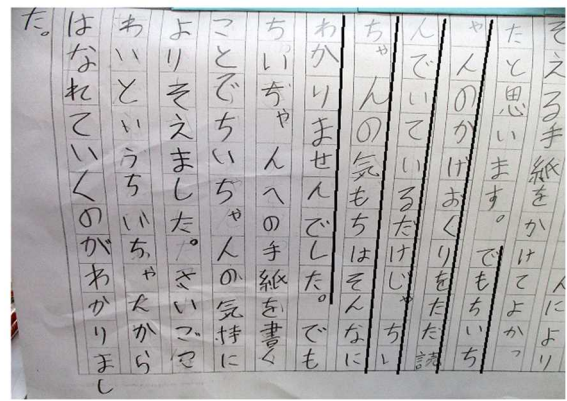 んにより
そえる手紙をかけてよかっ
たと思います。でもちいち
ゃんのかげおくりをただ読
んでいているだけじゃちい
ちゃんの気もちはそんなに
わかりませんでした。でも
ちいちゃんへの手紙を書く
ことでちいちゃんの気持に
よりそえました。さいごこ
わいというちいちゃんから
はなれていくのがわかりまし
た。